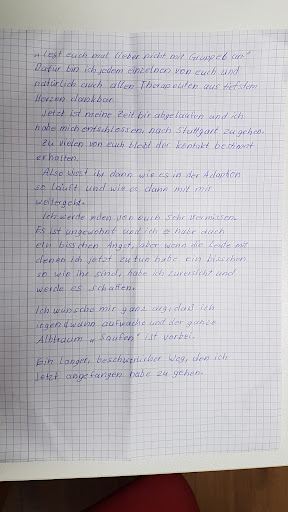 „Legt euch mal lieber nicht mit Grumpel an."
Dafür bin ich jedem einzelnen von euch und
natürlich auch allen Therapeuten aus tiefstem
Herzen dankbar.
Jetzt ist meine Zeit hir abgelaufen und ich
habe mich entschlossen, nach Stuttgart zu gehen.
Zu vielen von euch bleibt der Kontakt bestimmt
erhalten.
Also wisst ihr dann wie es in der Adaption
so läuft und wie es dann mit mir
weitergeht.
Ich werde jeden von euch sehr vermissen.
Es ist ungewohnt und ich habe doch
ein bisschen Angst, aber wenn die Leute mit
denen ich jetzt zu tun habe ein bisschen
so wie ihr sind, habe ich zuversicht und
werde es schaffen.
Ich wünsche mir ganz arg, daß ich
irgendwann aufwache und der ganze
Albtraum „Saufen" ist vorbei.
Ein langer, beschwerlicher Weg, den ich
jetzt angefangen habe zu gehen.